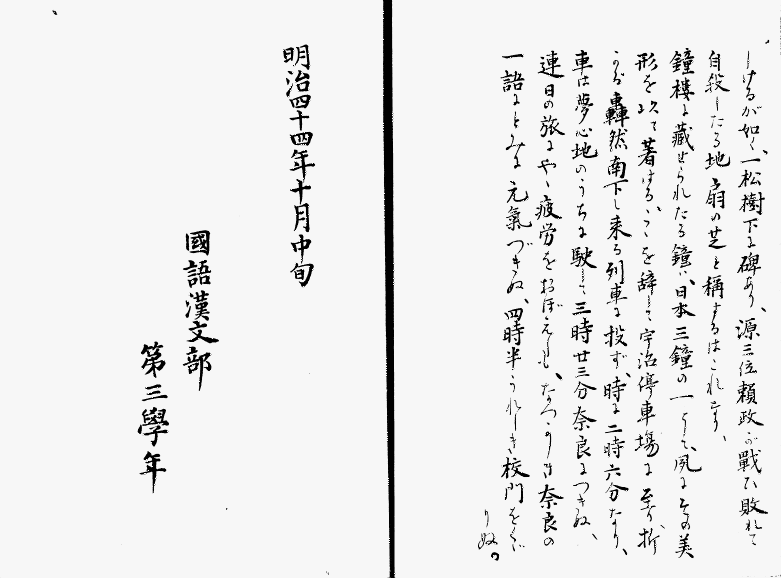 しけるが如く、一松樹下に碑あり、源三位頼政が戰ひ敗れて
自殺したる地扇の芝と稱するはこれなり、
鐘樓に藏せられたる鐘は、日本三鐘の一にして、夙にその美
形を以て著はる、こゝを辞して宇治停車塲に至り、折
から轟然南下し来る列車に投ず、時に二時六分なり、
車は夢心地のうちに馳して三時廿三分奈良につきぬ、
連日の旅にやゝ疲労をおぼえしも、なつかしき奈良の
一語にとみに元氣づきぬ、四時半うれしき校門をくゞ
りぬ。
明治四十四年十月中旬
國語漢文部
第三學年